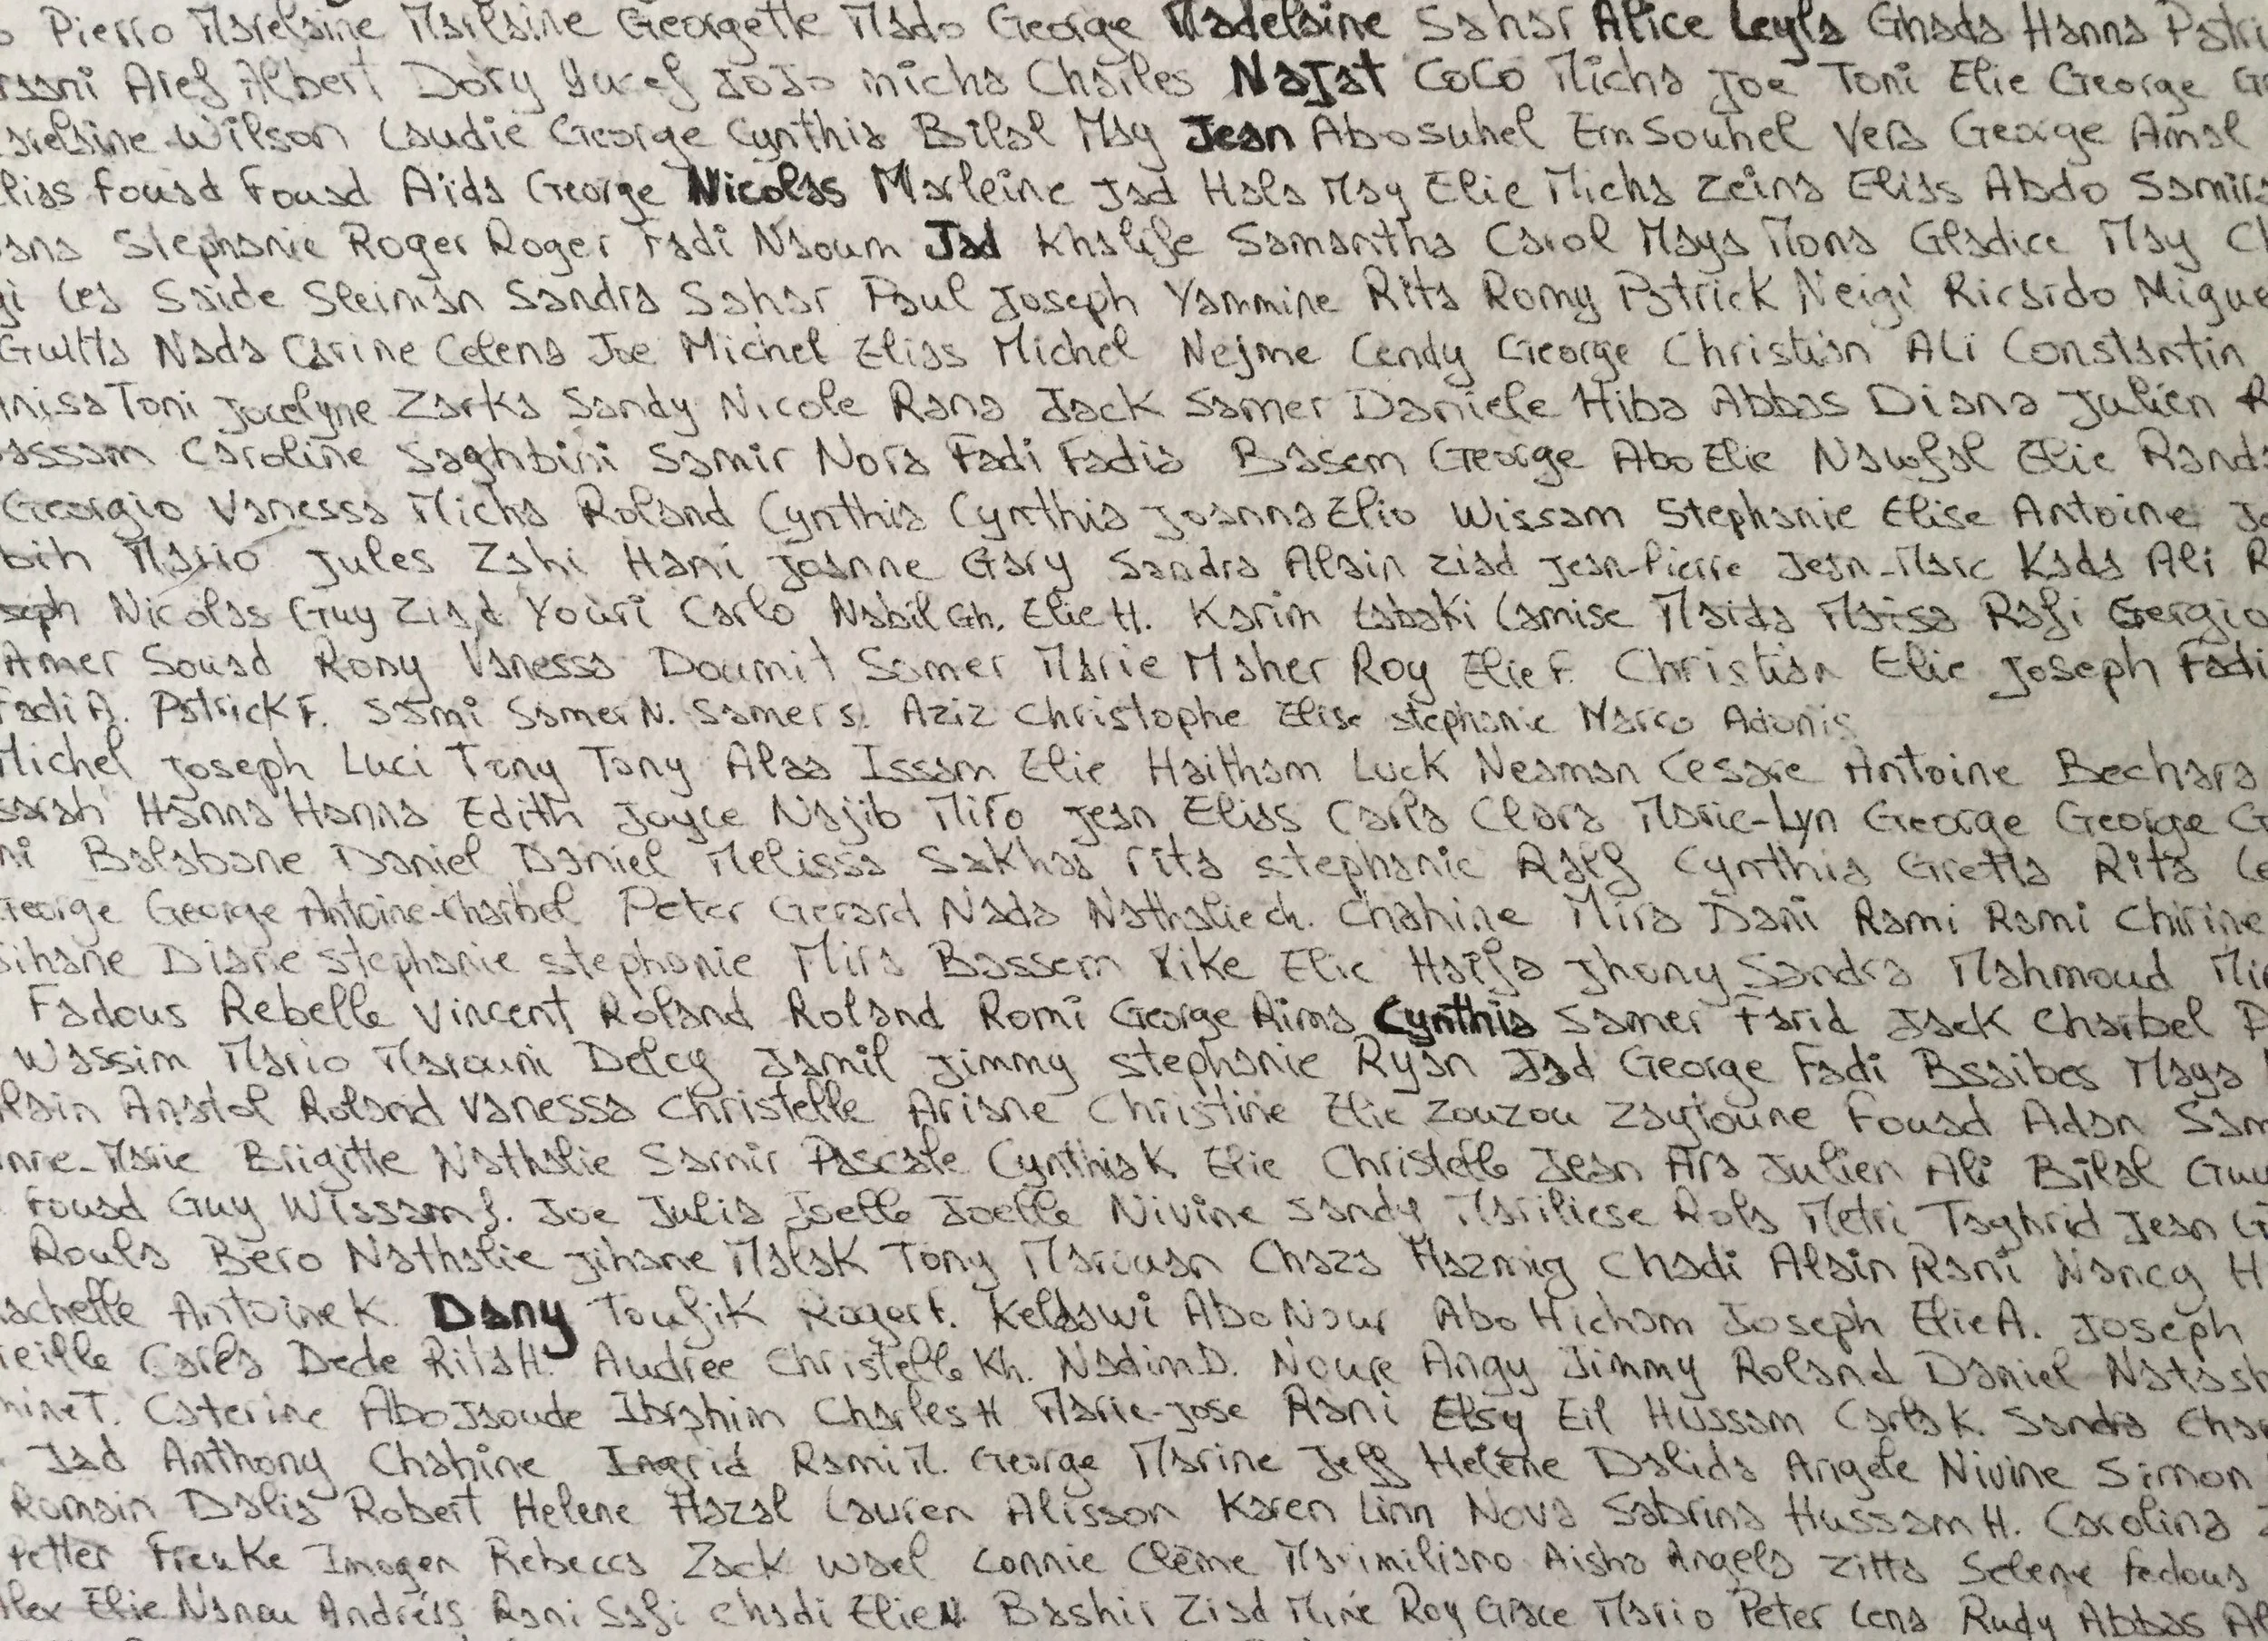 Pierro Marelaine Marlaine Georgette Mado George Madelaine Sahar Alice Leyla Ghada Hanna Patri
Aref Albert Dory Yucef JoJo micha Charles Najat CoCo Micha Joe Toni Elie George G
Wilson Laudie George Cynthia Bilal May Jean Abosuhel Em Souhel Vera George Amal
lias Fouad Fouad Aida George Nicolas Marleine Jad Hala May Elie Micha Zeina Elias Abdo Samira
ana Stephanie Roger Roger Fadi Naoum Jad Khalife Samantha Carol Maya Mona Gladice May Cl
gi Lea Saide Sleiman Sandra Sahar Paul Joseph Yammine Rita Romy Patrick Neigi Ricardo Migue
Guitta Nada Carine Celena Joe Michel Elias Michel Nejme Cendy George Christian Ali Constantin
nisa Toni Jocelyne Zarka Sandy Nicole Rana Jack Samer Daniele Hiba Abbas Diana Julien R
assam Caroline Saghbini Samir Nora Fadi Fadia Basem George Abo Elie Nawfal Elie Randa
Georgio Vanessa Micha Roland Cynthia Cynthia Joanna Elio Wissam Stephanie Elise Antoine Jo
bih Mario Jules Zahi Hani Joanne Gary Sandra Alain Ziad Jean-Pierre Jean-Marc Kada Ali R
seph Nicolas Guy Ziad Youri Carlo Nabil Gh. Elie H. Karim Labaki Lamise Maida Maisa Rafi Gergio
Amer Souad Rony Vanessa Doumit Samer Marie Maher Roy Elie F. Christian Elie Joseph Fadi
Fadi A. Patrick F. Sami Samer N. Samer S. Aziz Christophe Elise Stephanie Marco Adonis
Michel Joseph Luci Tony Tony Alaa Issam Elie Haitham Luck Neaman Cesare Antoine Bechara
sarah Hanna Hanna Edith Joyce Najib Miro Jean Elias Carla Clara Marie-Lyn George George G
ni Balabane Daniel Daniel Melissa Sakhaa rita stephanie Ralf Cynthia Gretta Rita Le
George George Antoine-Charbel Peter Gerard Nada Nathalie ch. Chahine Mira Dani Rami Rami Chirine
ihane Diane stephanie stephanie Mira Bassem Mike Elie Haifa Jhony Sandra Mahmoud Mi
Fadous Rebelle Vincent Roland Roland Romi George Rima Cynthia Samer Farid Jack Charbel P
Wassim Mario Marouni Delcy Jamil Jimmy Stephanie Ryan Jad George Fadi Bsaibes Maya
lain Anatol Roland Vanessa Christelle Ariane Christine Elie Zouzou Zaytoune Fouad Adan Sam
nne-Marie Brigitte Nathalie Samir Pascale Cynthia K Elie Christelle Jean Ara Julien Ali Bilal Guy
Fouad Guy Wissam f. Joe Julia Joelle Joelle Nivine Sandy Mariliese Rola Metri Taghrid Jean G
Roula Bero Nathalie Jihane Malak Tony Marouan Chaza Hazmig Chadi Alain Rani Nancy H
achelle Antoine K. Dany Toufik Roger F. Keldawi Abo Nour Abo Hicham Joseph Elie A. Joseph
reille Carla Dede Rita H. Audree Christelle Kh. Nadim D. Noure Angy Jimmy Roland Daniel Natash
mine T. Caterine Abo Jaoude Ibrahim Charles H Marie-Jose Rani Elsy Eil Hussam Carla K. Sandra Cha
Jad Anthony Chahine Ingrid Rami M. George Marine Jeff Helene Dalida Angele Nivine Simon
Romain Dalia Robert Helene Hazal Lauren Alisson Karen Linn Nova Sabrina Hussam H. Carolina
Petter Frauke Imogen Rebecca Zack Wael Connie Clème Maximiliano Aisha Angela Zitta Selene fadous
Alex Elie Nanou Andréas Rani Safi Chadi Elie N. Bashir Ziad Mine Roy Grace Mario Peter Lena Rudy Abbas Al